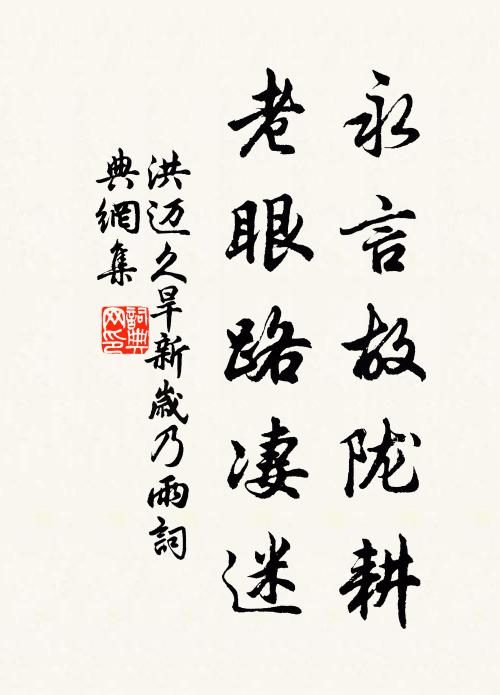 永言故陇耕
老眼路凄迷
洪迈久旱新歲乃雨詞
典網集
詞典网印